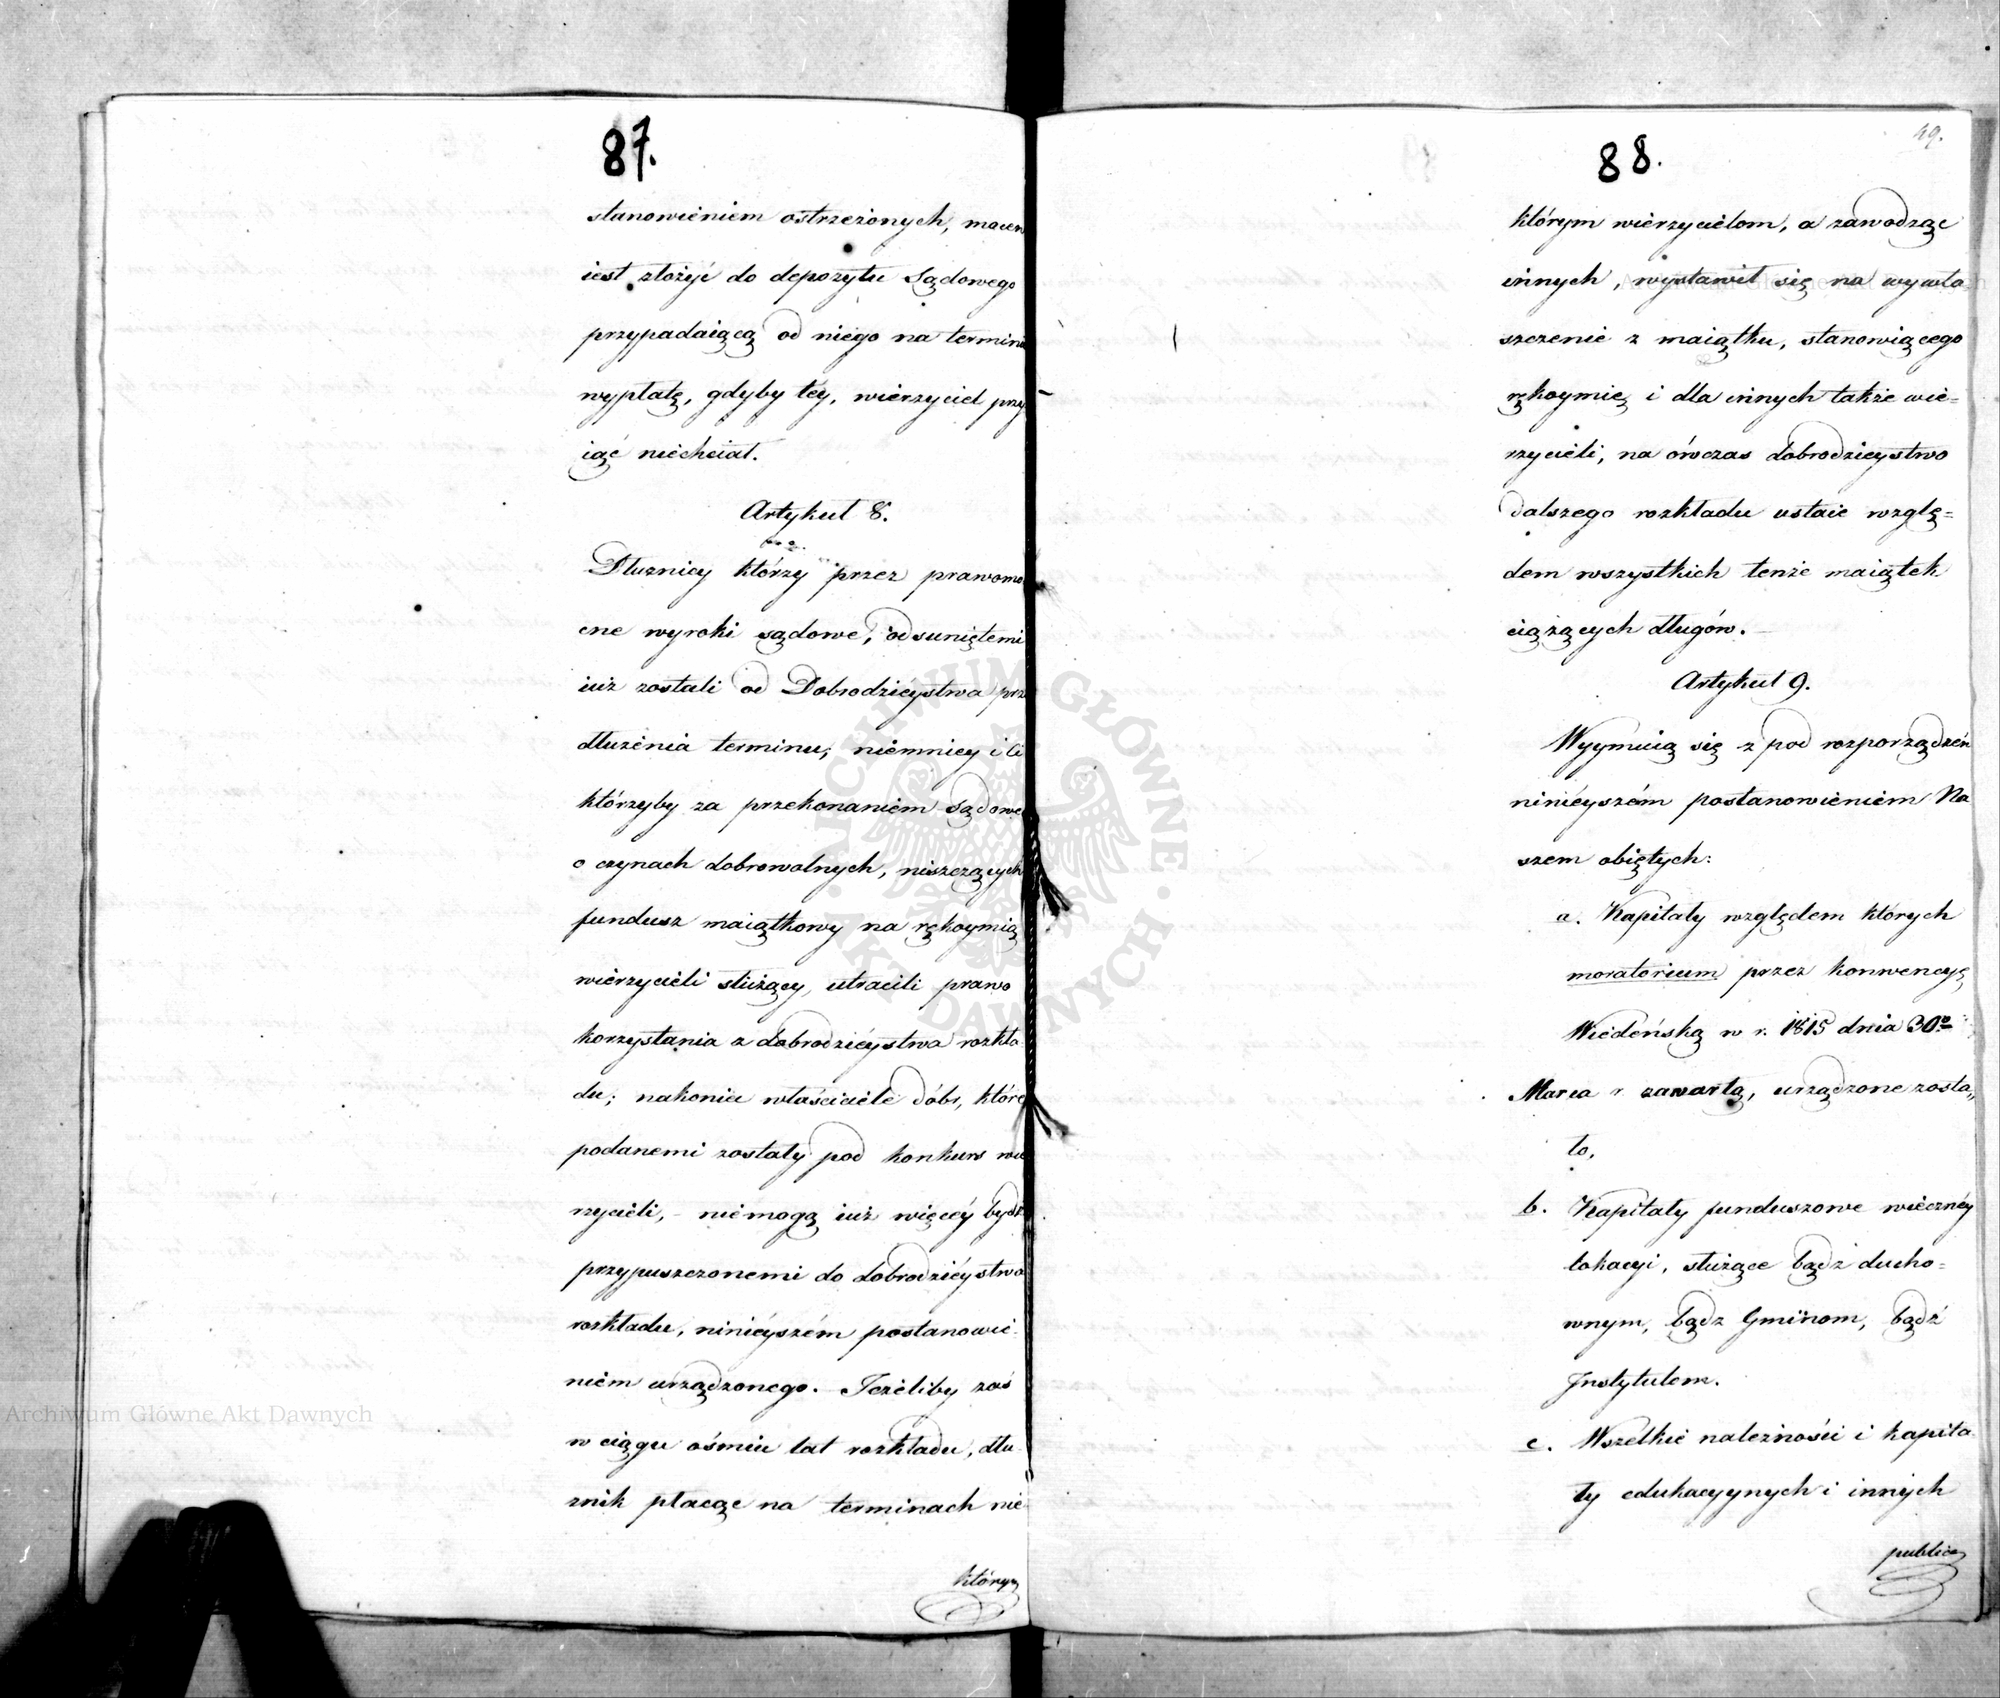 87.
stanowieniem ostrzeżonych, mocen
iest złożyć do depozytu Sądowego
przypadaiącą od niego na termina
wypłatę, gdyby téy, wierzyciel przy
iąć niechciał.
Artykuł 8.
Dłużnicy którzy przez prawomo
cne wyroki sądowe, odsuniętemi
iuż zostali od Dobrodzieystwa prze
dłużenia terminu; niemniey i ci
którzyby za przekonaniem Sądowe
o czynach dobrowolnych, niszczących
fundusz maiątkowy na rękoymią
wierzycieli służący, utracili prawo
korzystania z dobrodzieystwa rozkła
du; nakoniec właściciele dóbr, które
podanemi zostały pod konkurs wie
rzycieli, - niemogą iuż więcéy bydź
przypuszczonemi do dobrodzieystwa
rozkładu, ninieyszém postanowie-
niem urządzonego. Jeżeliby zaś
w ciągu ośmiu lat rozkładu, dłu-
żnik płacąc na terminach nie-
którym
88.
49.
którym wierzycielom, a zawodząc
innych, wystawił się na wywła
szczenie z maiątku, stanowiącego
rękoymię i dla innych także wie=
rzycieli, na ówczas dobrodzieystwo
dalszego rozkładu ustaie wzglę=
dem wszystkich tenże maiątek
ciążących długów. —
Artykuł 9.
Wyymuią się z pod rozporządzeń
ninieyszém postanowieniem Na
szem obiętych:
a. Kapitały względem których
moratorium przez konwencyę
Wiedeńską w r. 1815 dnia 30o
Marca r. zawartą, urządzone zosta„
ło,
b. Kapitały funduszowe wieczney
lokacyi, służące bądź ducho=
wnym, bądz Gminom, bądź
Instytutom.
c. Wszelkie należności i kapita
ły edukacyynych i innych
public
Archiwum Główne Akt Dawnych
ARCHIWUM GŁÓWNE · AKT DAWNYCH ·